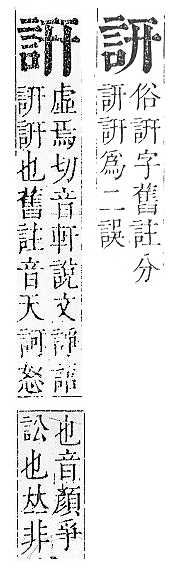 訮
俗詽字舊註分
詽訮爲二誤
詽
虛焉切音軒說文諍語
詽詽也舊註音天訶怒
也音顏爭
訟也𠀤非